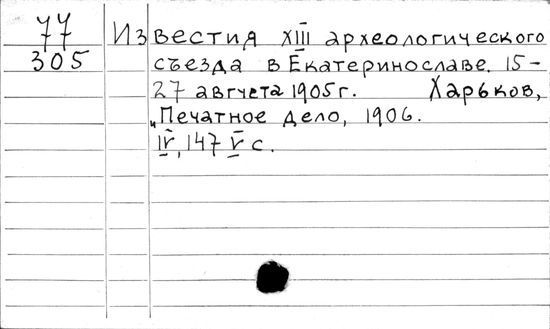 77
305
Известия XIII археологического
съезда в Екатеринославе. 15-
27 августа 1905г. Харьков,
„Печатное дело, 1906.
IV, 147 V с.